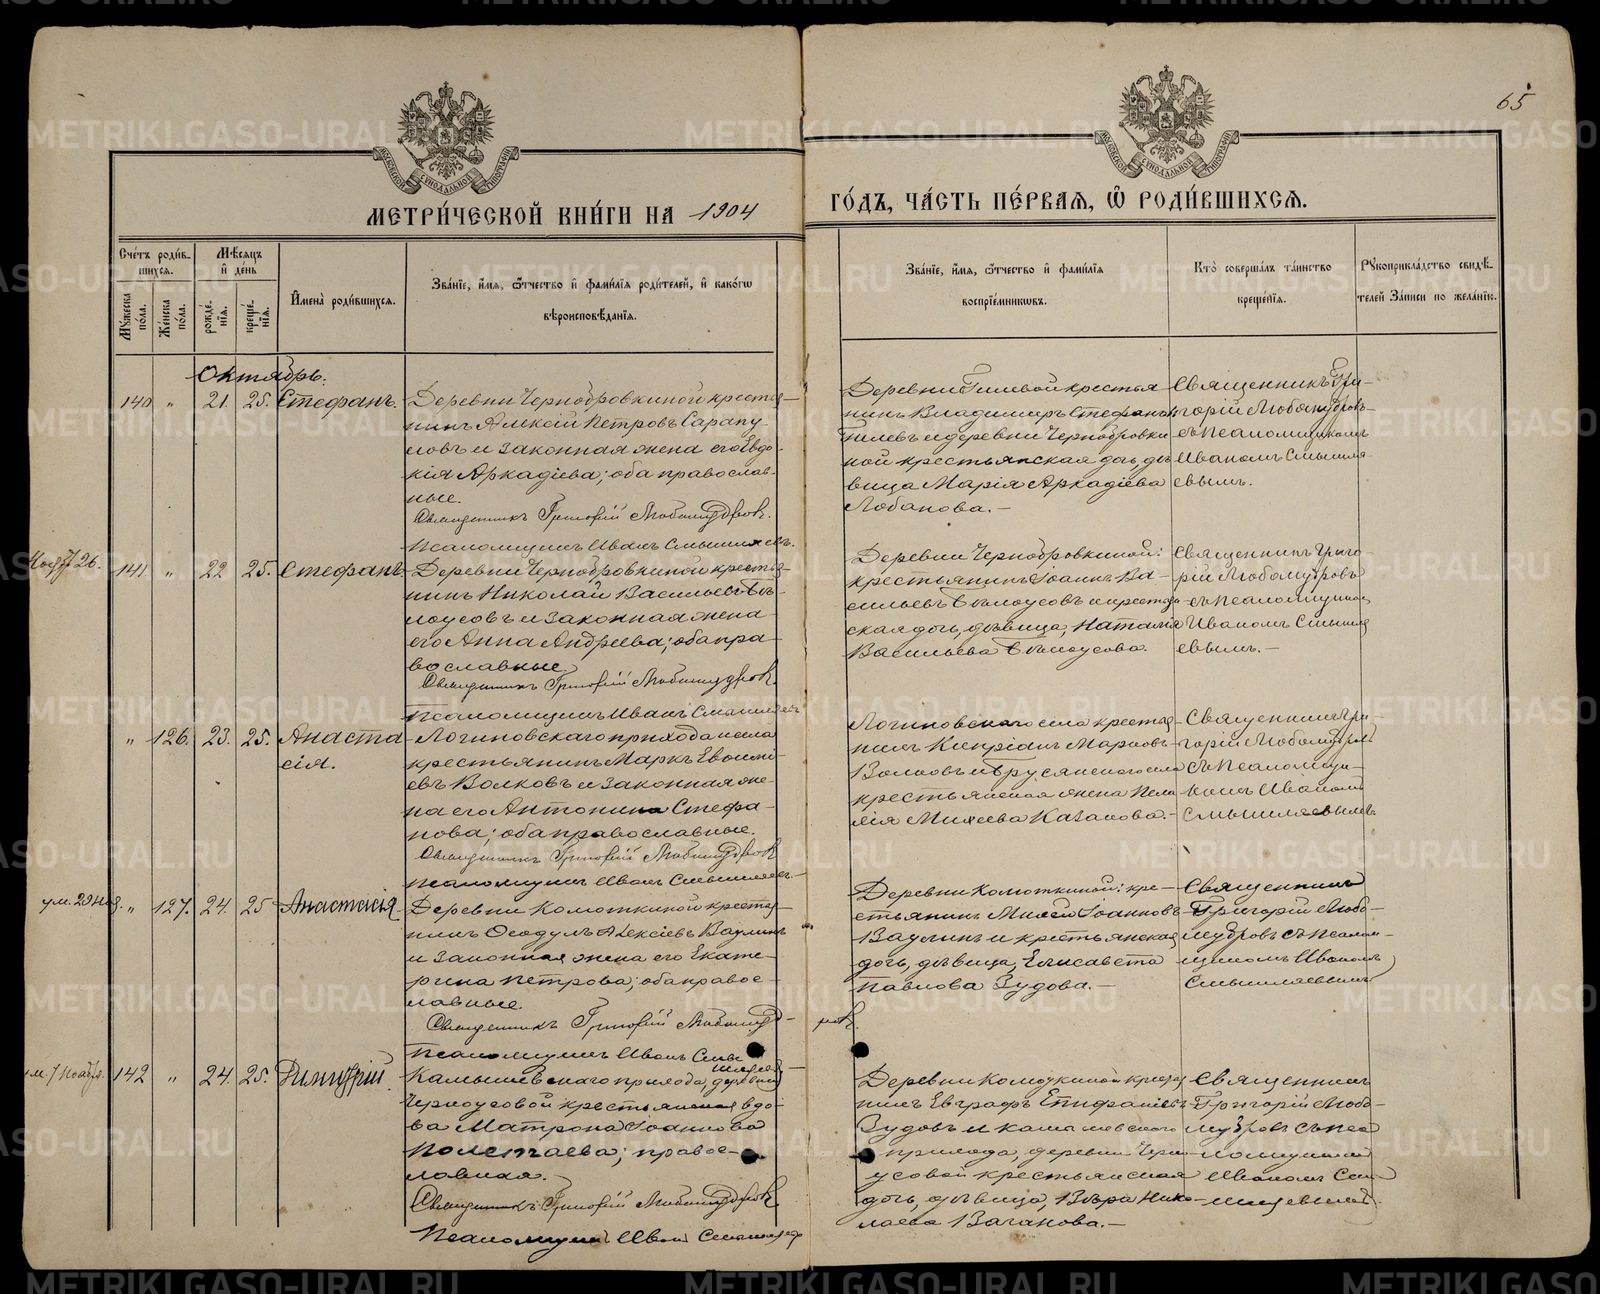 65
МЕТРИ́ЧЕСКОЙ КНИ́ГИ НА 1904 ГО́ДЪ, ЧА́СТЬ ПЕ́РВАЯ, Ѡ РОДИ́ВШИХСѦ.
Сче́тъ роди́вшихсѧ.
Мꙋ́жеска по́ла.
Же́нска по́ла.
Мѣ́сѧцъ и҆ де́нь
рожде́нїѧ.
креще́нїѧ.
И҆мена̀ роди́вшихсѧ.
Зва́нїе, и҆́мѧ, ѻ҆́тчество и҆ фами́лїѧ роди́телей, и҆ како́гѡ
вѣроисповѣ́данїѧ.
Зва́нїе, и҆́мѧ, ѻ҆́тчество и҆ фами́лїѧ
воспрїе́мникѡвъ.
Кто̀ соверша́лъ та́инство
креще́нїѧ.
Рꙋкоприкла́дство свидѣ́телей за́писи по жела́нїю.
Октябрь.
140 " 21. 25. Стефанъ.
Деревни Чернобровкиной крестья-
нинъ Алексій Петровъ Сарапу-
ловъ и законная жена его Евдо-
кія Аркадіева; оба православ-
ные.
Священникъ Григорій Любомудровъ.
Псаломщикъ Иванъ Смышляевъ.
Деревни Гилевой крестья
нинъ Владимиръ Стефановъ
Гилевъ и деревни Чернобровки
ной крестьянская дочь, дѣ
вица Марія Аркадіева
Лобанова.
Священникъ Гри-
горій Любомудровъ
съ псаломщикомъ
Иваномъ Смышля
евымъ.
26.
141 " 22 25. Стефанъ
Деревни Чернобровкиной крестья-
нинъ Николай Васильевъ Бѣ-
лоусовъ и законная жена
его Анна Андреева; оба пра-
вославные.
Священникъ Григорій Любомудровъ.
Псаломщикъ Иванъ Смышляевъ
Деревни Чернобровкиной:
крестьянинъ Іоаннъ Ва-
сильевъ Бѣлоусовъ и крестьян-
ская дочь, дѣвица, Наталія
Васильева Бѣлоусова.
Священникъ Григо-
рій Любомудровъ
съ псаломщикомъ
Иваномъ Смышля
евымъ.
" 126. 23. 25. Анаста
сія.
Логиновскаго прихода и села
крестьянинъ Маркъ
Волковъ и законная же-
на его Антонина Стефа-
нова; оба православные.
Священникъ Григорій Любомудровъ
Псаломщикъ Иванъ Смышляевъ.
Логиновскаго села крестья-
нинъ Кипріанъ Марковъ
Волковъ и Брусянскаго села
крестьянская жена Пела
гія Михеева Казакова.
Священникъ Гри-
горій Любомудровъ
съ псаломщи-
комъ Иваномъ
Смышляевымъ
ум. 29 нояб. " 127. 24. 25 Анастасія
Деревни Комоткиной крестья-
нинъ Ѳеодулъ Алексіевъ Ваулинъ
и законная жена его Екате-
рина Петрова; оба правос-
лавные.
Священникъ Григорій Любомуд-
ровъ.
Псаломщикъ Иванъ Смы
шляевъ
Деревни Комоткиной: кре-
стьянинъ Михей Іоанновъ
Ваулинъ и крестьянская
дочь, дѣвица, Елисавета
Павлова Зудова.
Священникъ
Григорій Любо-
мудровъ съ псалом-
щикомъ Иваномъ
Смышляевымъ
ум. 7 ноября. 142 " 24. 25. Димитрій.
Камышевскаго прихода, деревни
Черноусовой крестьянская вдо-
ва Матрона Іоаннова
Полетаева; правос-
лавная.
Священникъ Григорій Любомудровъ
Псаломщикъ Иванъ Смышляевъ
Деревни Комоткиной крестья
нинъ Евграфъ Епифаніевъ
Зудовъ и камышевского
прихода, деревни Черно
усовой крестьянская
дочь, дѣвица, Вѣра Нико-
лаева Ваганова.
Священникъ
Григорій Любо-
мудровъ съ пса
ломщикомъ
Иваномъ Смы
шляевымъ.
METRIKI.GASO-URAL.RU